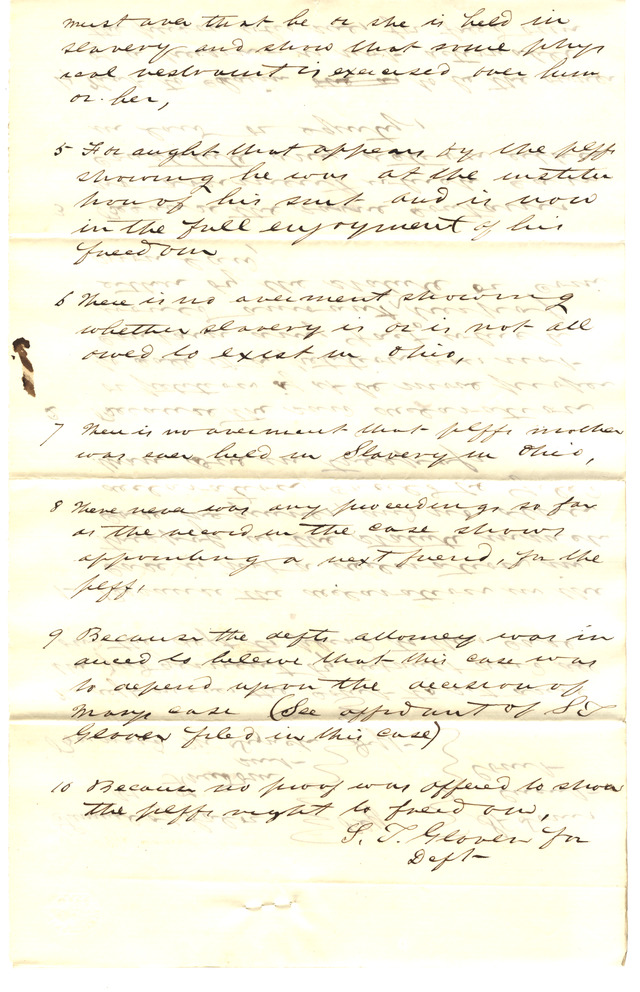 must aver that he or she is held in
slavery and show that some phys
ical restraint is exercised over him
or her,
5 For aught that appears by the plffs
showing he was at the institu
tion of his suit and is now
in the full enjoyment of his
freedom
6 There is no averment showing
whether slavery is or is not all
owed to exist in Ohio,
7 There is no averment that plffs mother
was ever held in Slavery in Ohio,
8 There never was any proceedings so far
as the record in the case shows
appointing a next friend, for the
plff.
9 Because the defts attorney was in
duced to beleive that this case was
to depend upon the decision of
Marys case (See affidavit of S T
Glover filed in this case)
10 Because no proof was offered to show
the plffs right to freedom,
S. T. Glover for
Deft